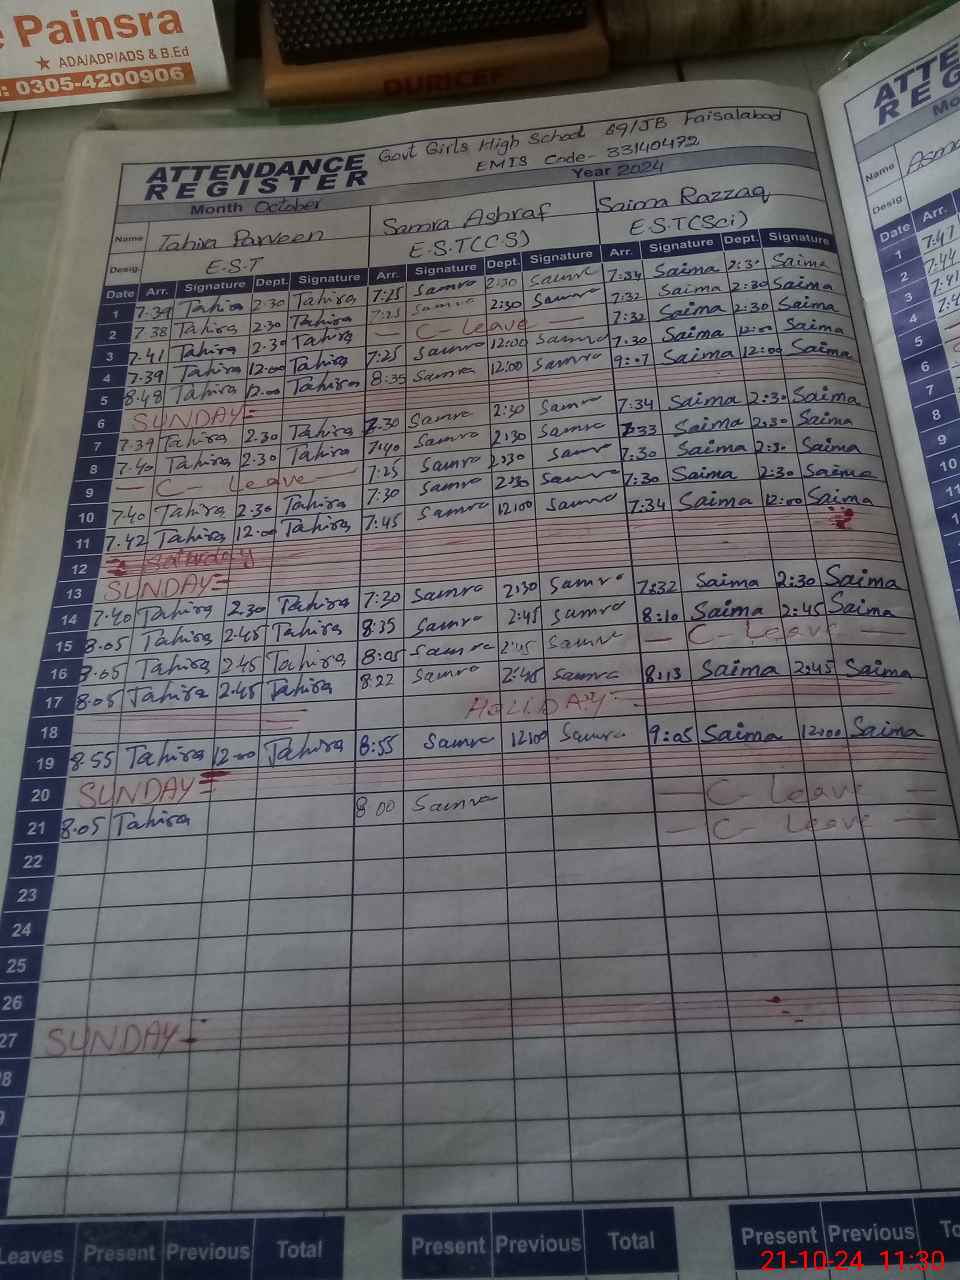 e Painsra
★ ADA/ADP/ADS & B.Ed
: 0305-4200906
DURICEF
ATTENDANCE REGISTER
Govt Girls High School 89/JB Faisalabad
EMIS Code- 33140472
Month October Year 2024
Name Tahira Parveen Samra Ashraf Saima Razzaq
Desig. E.S.T E.S.T(C.S) E.S.T(Sci)
Date Arr. Signature Dept. Signature Arr. Signature Dept. Signature Arr. Signature Dept. Signature
1 7.39 Tahira 2:30 Tahira 7:25 Samra 2:30 Samra 7:34 Saima 2:30 Saima
2 7.38 Tahira 2.30 Tahira 7:25 Samra 2:30 Samra 7:32 Saima 2:30 Saima
3 7.41 Tahira 2.30 Tahira — C-Leave — 7:32 Saima 2:30 Saima
4 7.39 Tahira 12.00 Tahira 7:25 Samra 12:00 Samra 7.30 Saima 12:00 Saima
5 8.48 Tahira 12.00 Tahira 8:35 Samra 12:00 Samra 9:07 Saima 12:00 Saima
6 SUNDAY
7 7.39 Tahira 2.30 Tahira 7.30 Samra 2:30 Samra 7:34 Saima 2:30 Saima
8 7.40 Tahira 2.30 Tahira 7:40 Samra 2:30 Samra 7:33 Saima 2:30 Saima
9 — C- Leave — 7:25 Samra 2:30 Samra 7:30 Saima 2:30 Saima
10 7.40 Tahira 2.30 Tahira 7:30 Samra 2:30 Samra 7:30 Saima 2:30 Saima
11 7.42 Tahira 12.00 Tahira 7:45 Samra 12:00 Samra 7:34 Saima 12:00 Saima
12 Saturday
13 SUNDAY
14 7.40 Tahira 2.30 Tahira 7:30 Samra 2:30 Samra 7:32 Saima 2:30 Saima
15 8.05 Tahira 2.45 Tahira 8:35 Samra 2:45 Samra 8:10 Saima 2:45 Saima
16 8.05 Tahira 2.45 Tahira 8:05 Samra 2:45 Samra — C- Leave —
17 8.05 Tahira 2.45 Tahira 8:22 Samra 2:45 Samra 8:13 Saima 2:45 Saima
18 HOLIDAY
19 8.55 Tahira 12.00 Tahira 8:55 Samra 12:00 Samra 9:05 Saima 12:00 Saima
20 SUNDAY — C- Leave —
21 8.05 Tahira 8:00 Samra — C- Leave —
22
23
24
25
26
27 SUNDAY
Leaves Present Previous Total Present Previous Total Present Previous
ATTE
REG
Mo
Name Asma
Desig.
Date Arr.
1 7.47
2 7.44
3 7.41
4
5
6
7
8
9
10
11
21-10-24 11:30